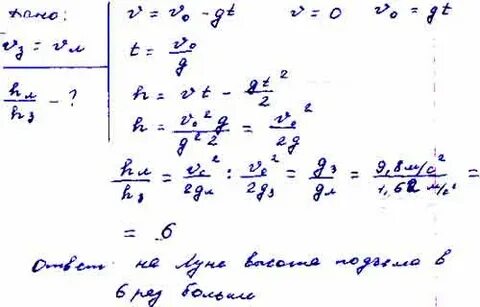 дано:
v₃ = vл
hл/h₃ - ?
v = v₀ - gt v = 0 v₀ = gt
t = v₀/g
h = vt - gt²/2
h = v₀²g/g²2 = v₀²/2g
hл/h₃ = v₀²/2gл : v₀²/2g₃ = g₃/gл = 9,8 м/с²/1,62 м/с² =
= 6
Ответ: на Луне высота подъема в
6 раз больше